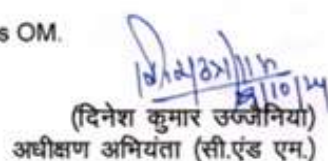 s OM.
(दिनेश कुमार उज्जैनियां)
अधीक्षण अभियंता (सी.एंड एम.)